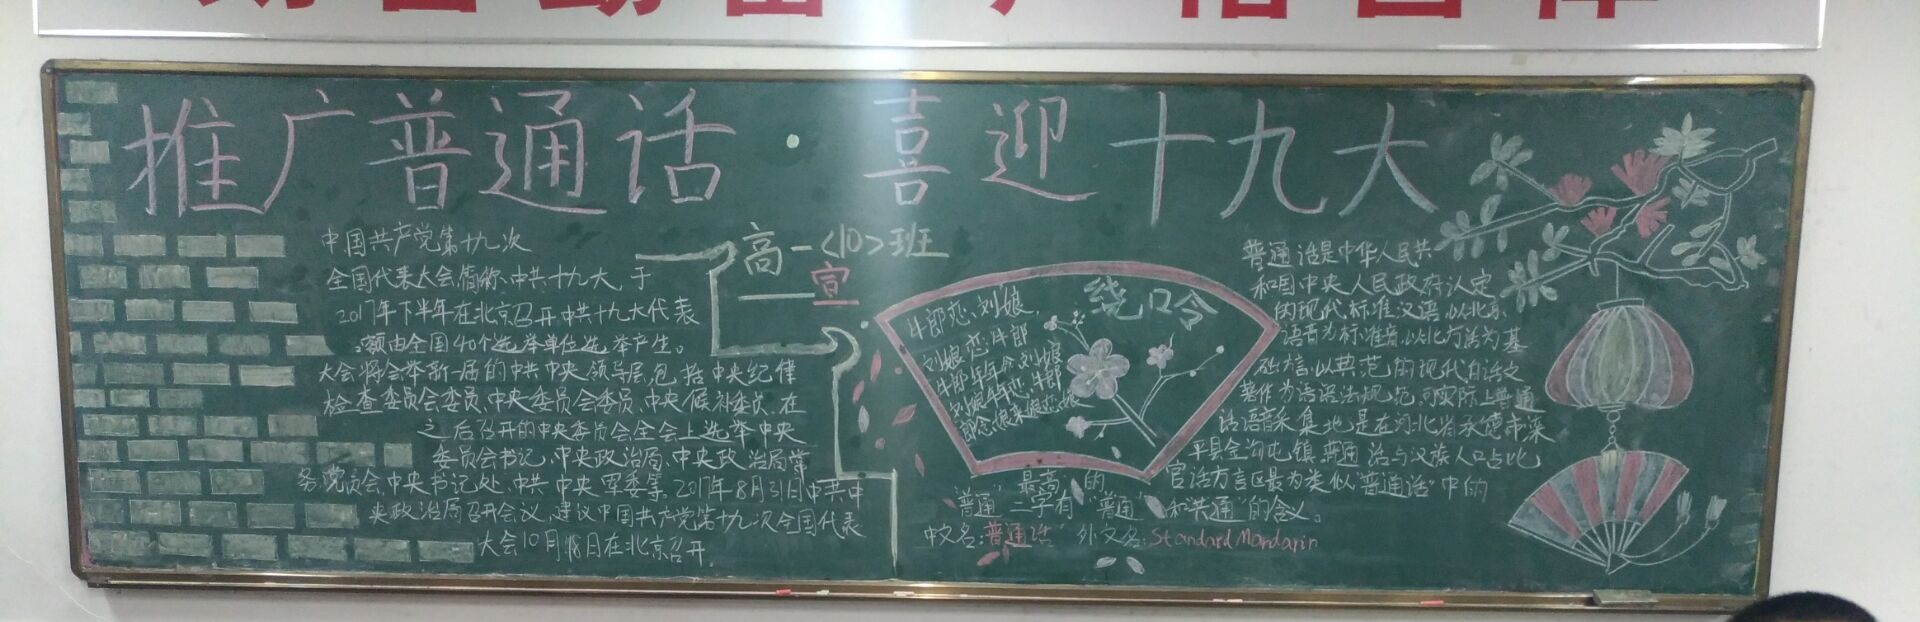 推广普通话·喜迎十九大
高一<10>班
宣
中国共产党第十九次
全国代表大会,简称中共十九大,于
2017年下半年在北京召开中共十九大代表
名额由全国40个选举单位选举产生。
大会将会举新一届的中共中央领导层,包括中央纪律
检查委员会委员、中央委员会委员、中央候补委员、在
之后召开的中央委员会全会上选举中央
委员会书记、中央政治局、中央政治局常
务党员会、中央书记处、中共中央军委等。2017年8月31日中共中
央政治局召开会议,建议中国共产党第十九次全国代表
大会10月18日在北京召开。
绕口令
牛郎恋刘娘,
刘娘恋牛郎
牛郎年年念刘娘
刘娘年年恋牛郎
郎念娘来娘恋郎
普通话是中华人民共
和国中央人民政府认定
的现代标准汉语,以北京
语音为标准音,以北方话为基
础方言,以典范的现代白话文
著作为语法规范,而实际上普通
话语音采集地是在河北省承德市滦
平县金沟屯镇,普通话与汉族人口占比
最高的官话方言区最为类似"普通话"中的
"普通"二字有"普通"和"共通"的含义。
中文名:普通话 外文名:Standard Mandarin